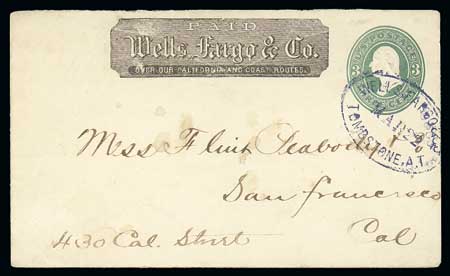 PAID
Wells, Fargo & Co.
OVER OUR CALIFORNIA AND COAST ROUTES.
U.S. POSTAGE
3 3
THREE CENTS
WELLS FARGO & CO
TOMBSTONE, A.T.
Mess Flint Peabody
San Francisco
430 Cal. Street Cal